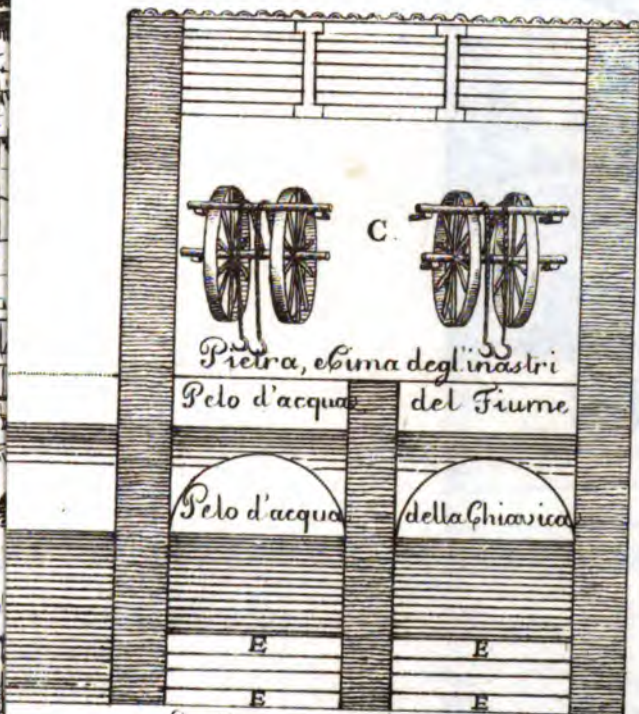 C.
Pietra, e Cima degl'inastri
Pelo d'acqua del Fiume
Pelo d'acqua della Chiavica
E E
E E